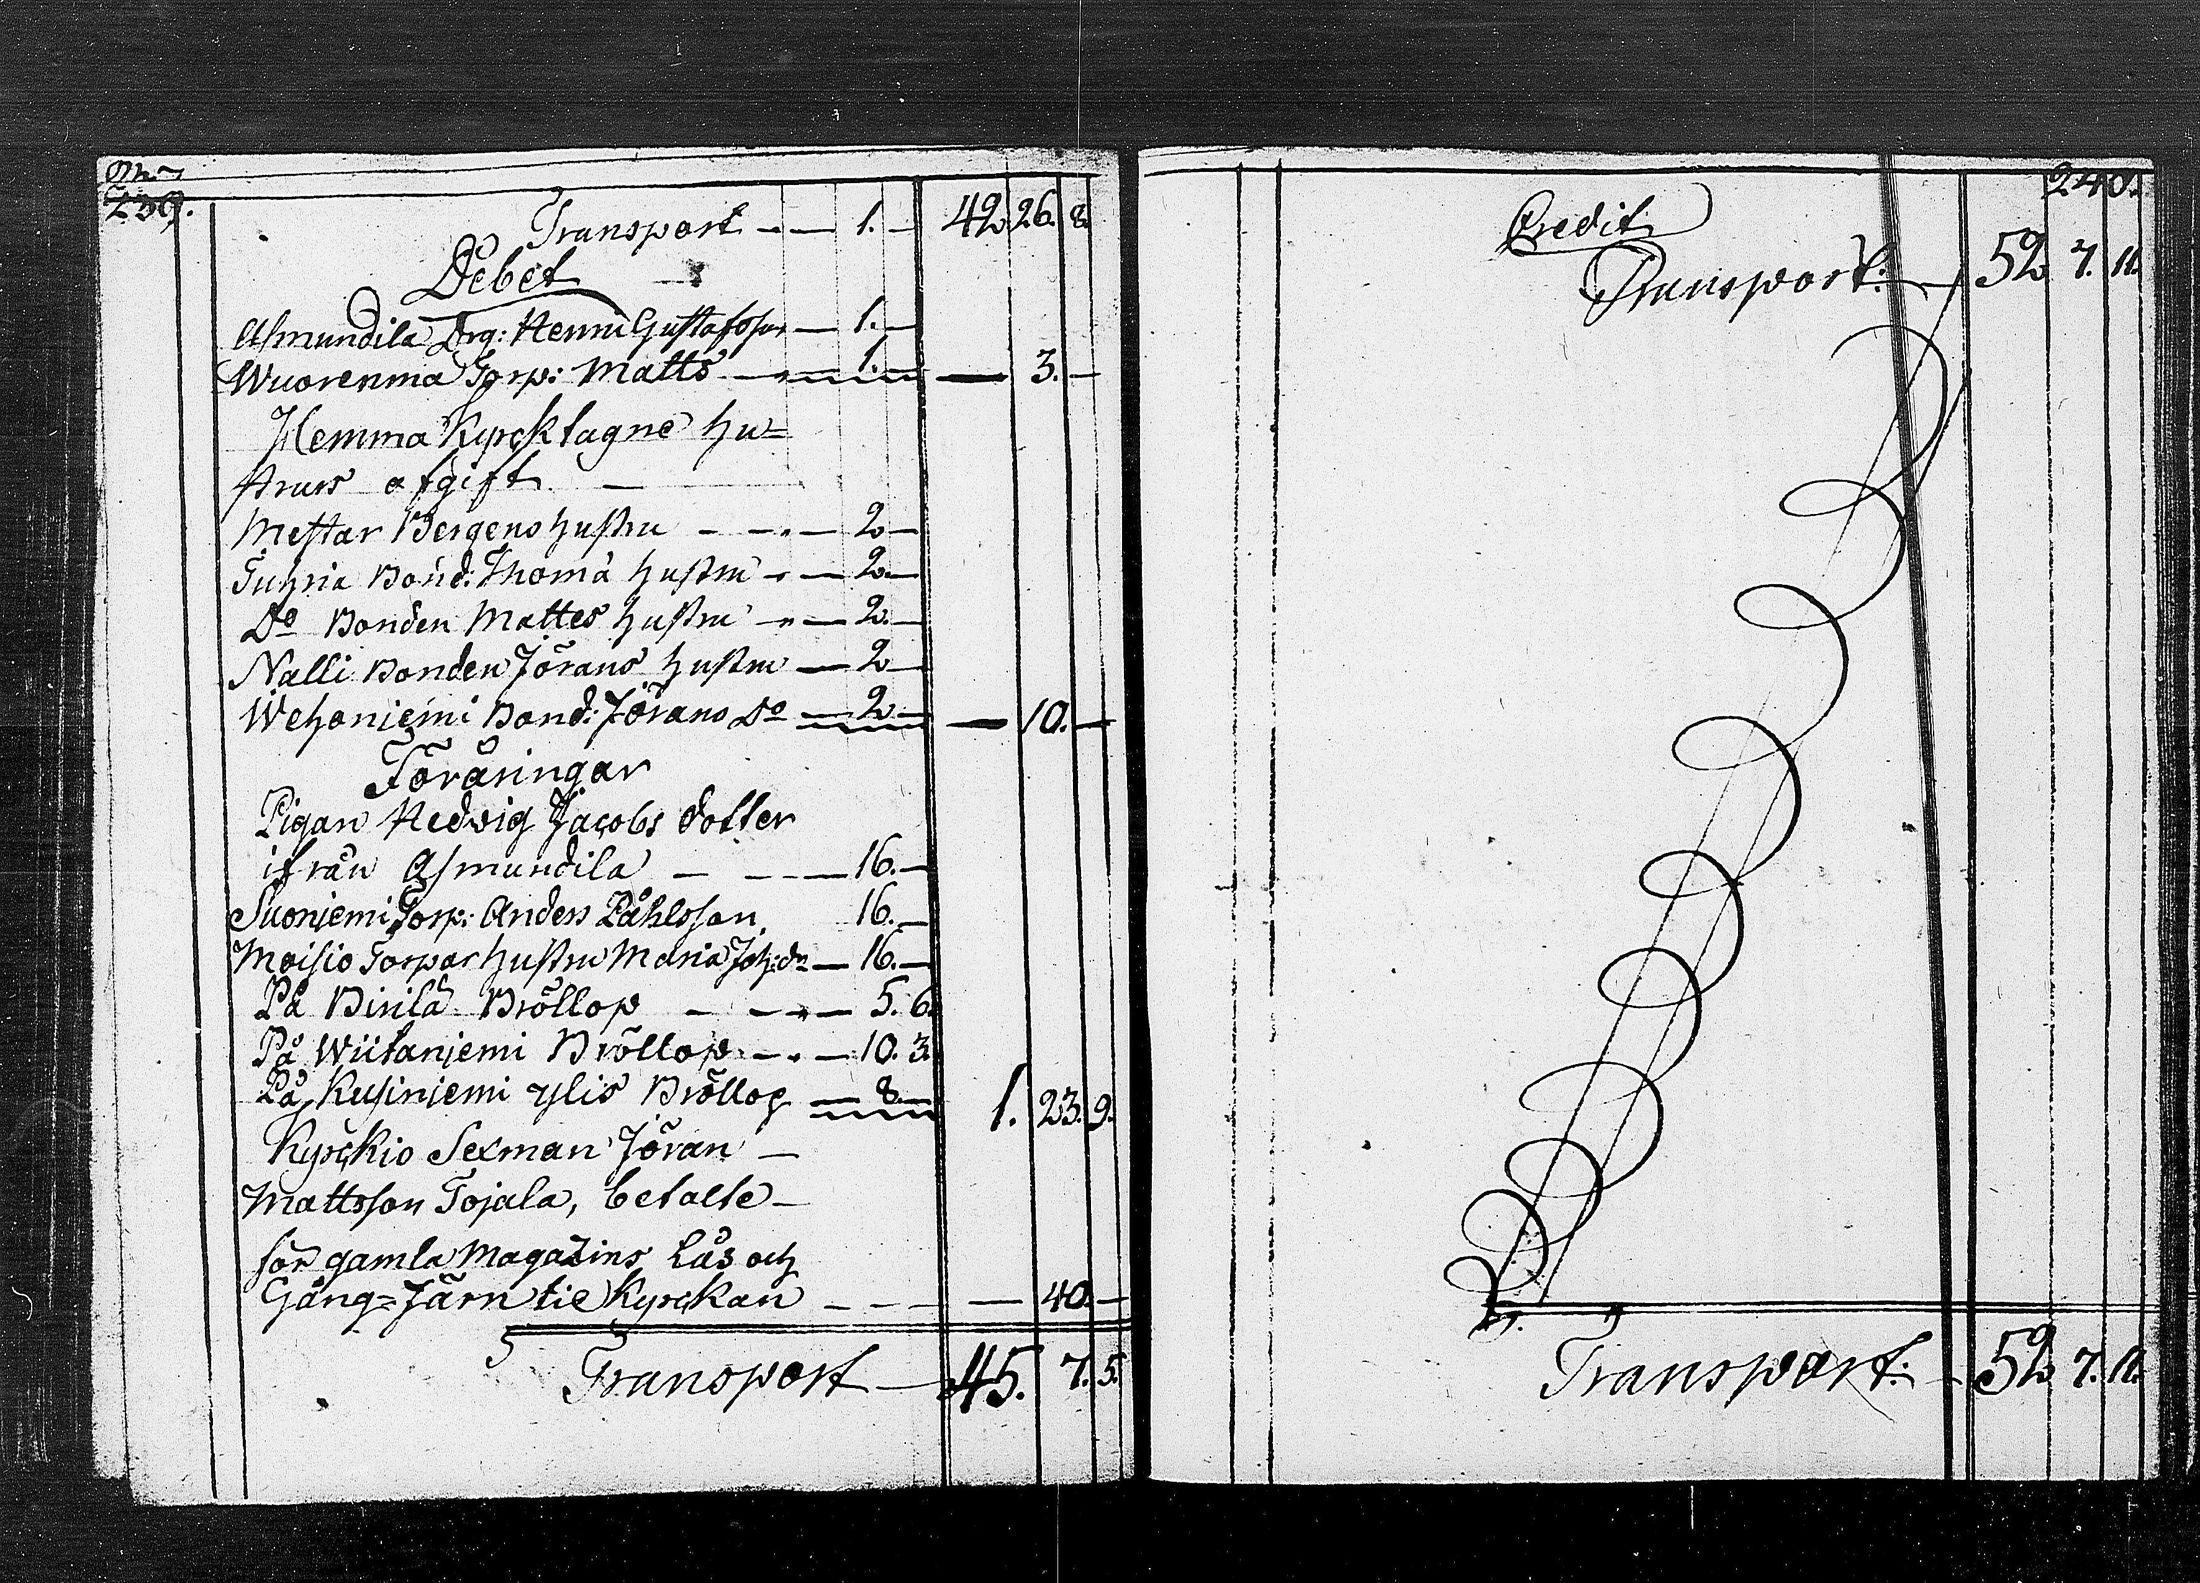 239.
Transport — 1. — 42 26. 8.
Debet
Asmundila Drg: Henric Gustafsson — 1. —
Wuorenma Torp: Matts — 1. — — 3. —
Hemma Kyrcktagne hu=
strurs afgift —
Mestar Bergens hustru — — 2 —
Tuhria Bond: Thoma hustru — 2 —
Do Bonden Mattes hustru — 2. —
Nalli Bonden Jörans hustru — 2 —
Wehoniemi Bond: Jörans Do — 2 — — 10. —
Föräringar
Pigan Hedvig Jacobs dotter
ifrån Asmundila — — 16. —
Suoniemi Torp: Anders Påhlsson 16. —
Moisio Torpar hustru Maria Joh: dr — 16. —
På Birila Bröllop — — 5. 6.
På Wiitaniemi Bröllop — 10. 3.
På Kusiniemi ylis Bröllop — 8. — 1. 23. 9.
Kyrckio Sexman Jöran —
Mattsson Tojala, betalte —
för gamla Magazins Lås och
Gång=Järn til Kyrckan — — — 40. —
Transport — 45. 7. 5.
240.
Credit
Transport: — 52 7. 11.
Transport: — 52 7. 11.